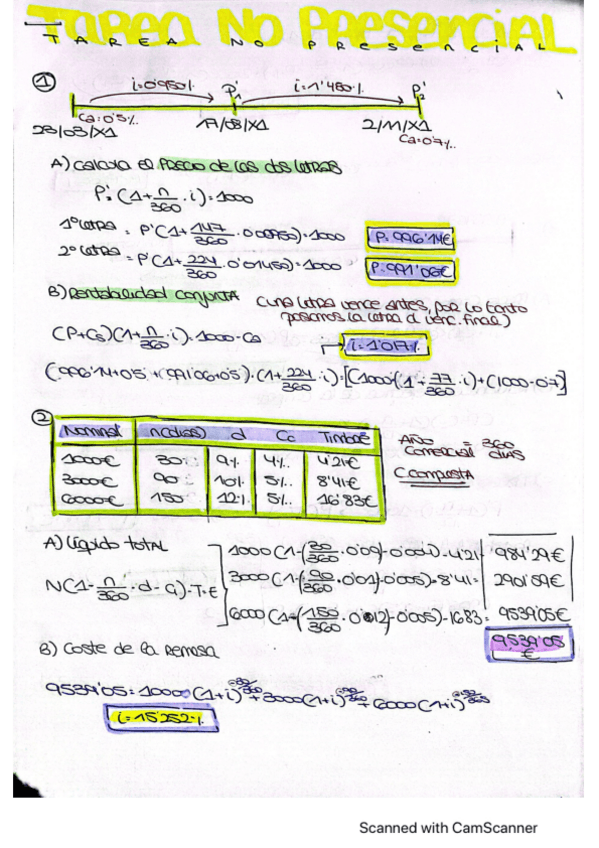 TAREA NO PRESENCIAL
TAREA NO PRESENCIAL
1
i=0'950% P'1 i=1'450% P'2
Ca=0'5‰
23/03/X1 17/08/X1 2/11/X1
Ca=0'7‰
A) Calcula el Precio de las dos letras
P'(1+n/360·i)=1000
1º letra = P'(1+147/360·0'00950)=1000 P=996'14€
2º letra = P'(1+224/360·0'01450)=1000 P=991'06€
B) Rentabilidad conjunta (una letra vence antes, por lo tanto
pasamos la letra al venc. final)
(P+Cs)(1+n/360·i)=1000-Ca i=1'017%
(996'14+0'5+(991'06+0'5)·(1+224/360·i)=[(1000·(1+77/360·i)+(1000-0'7)]
2
Nominal n(días) d Cc Timbre
1000€ 30 9% 4‰ 4'21€
3000€ 90 10% 5‰ 8'41€
6000€ 150 12% 5‰ 16'83€
Año Comercial = 360 días
C. Compuesta
A) Líquido total
N(1-n/360·d-g)-T·E
1000(1-(30/360·0'09)-0'004)-4'21 984'29€
3000(1-(90/360·0'01)-0'005)-8'41= 2901'59€
6000(1-(150/360·0'012)-0'005)-16'83= 9539'05€
9539'05€
B) Coste de la remesa
9539'05=1000(1+i)^-30/360+3000(1+i)^-90/360+6000(1+i)^-150/360
i=15'252%
Scanned with CamScanner